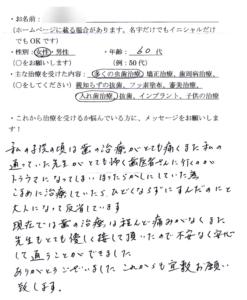 ・お名前:
(ホームページに載る場合があります。名字だけでもイニシャルだけ
でもOKです)
・性別: 女性 ・ 男性 ・年齢: 60代
(○をお願いします) (例:50代)
・主な治療を受けた内容: 多くの虫歯治療、矯正治療、歯周病治療、
(○をしてください) 親知らずの抜歯、ファ素塗布、審美治療、
入れ歯治療、抜歯、インプラント、子供の治療
・これから治療を受けるか悩んでいる方に、メッセージをお願いしま
す!
私の子供の頃は歯の治療がとても痛くまた私の
通っていた先生がとても怖く歯医者さんに行くのが
トラウマになってしまいほったらかしにしていた為
こまめに治療していたら、ひどくならずにすんだのにと
大人になって反省しています
現在では歯の治療は殆んど痛みがなくまた
先生もとても優しく接して頂いたので不安なく安心
して通うことができました
ありがとうございました これからも宜敷お願い
致します。